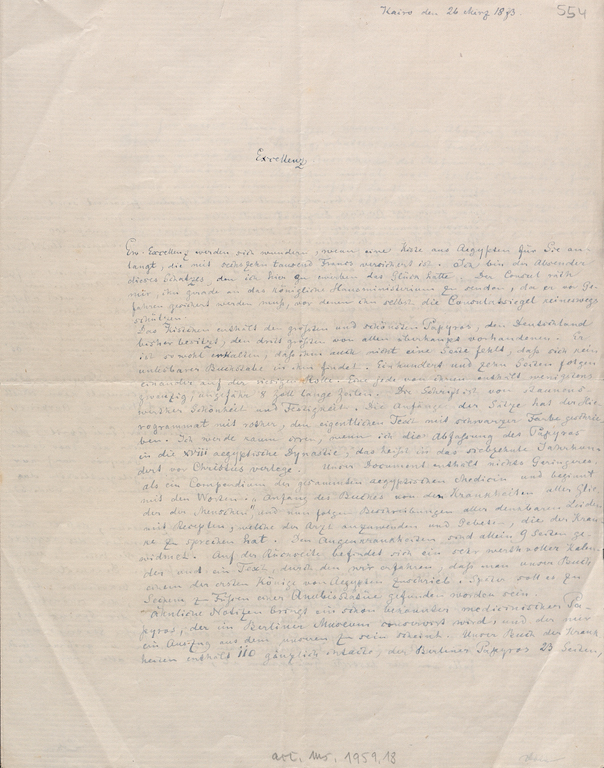 Kairo den 26 März 1873.
554
Excellenz
Ew. Excellenz werden sich wundern, wenn eine Kiste aus Aegypten für Sie an-
langt, die mit sechszehn tausend Francs versichert ist. Ich bin der Absender
dieses Schatzes, den ich hier zu machen das Glück hatte. Der Consul räth
mir, ihn gerade an das königliche Hausministerium zu senden, da er vor Ge-
fahren gesichert werden muß, vor denen ihn selbst die Consulatssiegel keineswegs
schützen.
Das Kistchen enthält den größten und schönsten Papyros, den Deutschland
bisher besitzt, den dritt größten von allen überhaupt vorhandenen. Er
ist so wohl erhalten, daß ihm auch nicht eine Seite fehlt, daß sich kein
unlesbarer Buchstabe in ihm findet. Einhundert und zehn Seiten folgen
einander auf der Rolle. Eine jede von ihnen enthält wenigstens
zwanzig, ungefähr 8 Zoll lange Zeilen. Die Schrift ist von staunens-
werther Schönheit und Festigkeit. Die Anfänge der Sätze hat der Hie-
rogrammat mit rother, den eigentlichen Text mit schwarzer Farbe geschrie-
ben. Ich werde kaum irren, wenn ich die Abfassung des Papyros
in die XVIII aegyptische Dynastie, das heißt in das siebzehnte Jahrhun-
dert vor Christus verlege. Unser Document enthält nichts Geringeres
als ein Compendium der gesammten aegyptischen Medicin und beginnt
mit den Worten: "Anfang des Buches von den Krankheiten aller Glie-
der des Menschen" und nun folgen Beschreibungen aller denkbaren Leiden
mit Recepten, welche der Arzt anzuwenden und Gebeten, die der Kran-
ke zu sprechen hat. Den Augenkrankheiten sind allein 9 Seiten ge-
widmet. Auf der Rückseite befindet sich ein sehr werthvoller Kalen-
der und ein Text, durch den wir erfahren, daß man unser Buch
einem der ersten Könige von Aegypten zuschrieb. Später soll es zu
zu Füßen einer Anubisstatue gefunden worden sein.
Aehnliche Notizen bringt ein schon bekannter medicinischer Pa-
pyros, der im Berliner Museum conservirt wird, und der nur
ein Auszug aus dem unseren zu sein scheint. Unser Buch der Krank-
heiten enthält 110 gänzlich intacte, der Berliner Papyros 23 Seiten,
acc. ms. 1959.18